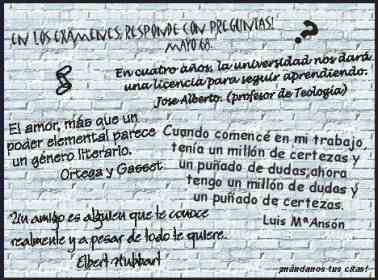 EN LOS EXÁMENES RESPONDE CON PREGUNTAS!
MAYO 68.
?
En cuatro años, la universidad nos dará
una licencia para seguir aprendiendo.
Jose Alberto. (profesor de Teología)
El amor, más que un
poder elemental parece
un género literario.
Ortega y Gasset
Cuando comencé en mi trabajo,
tenía un millón de certezas y
un puñado de dudas;ahora
tengo un millón de dudas y
un puñado de certezas.
Luis MªAnsón
Un amigo es alguien que te conoce
realmente y a pesar de todo te quiere.
Elbert Hubbart
¡mándanos tus citas!